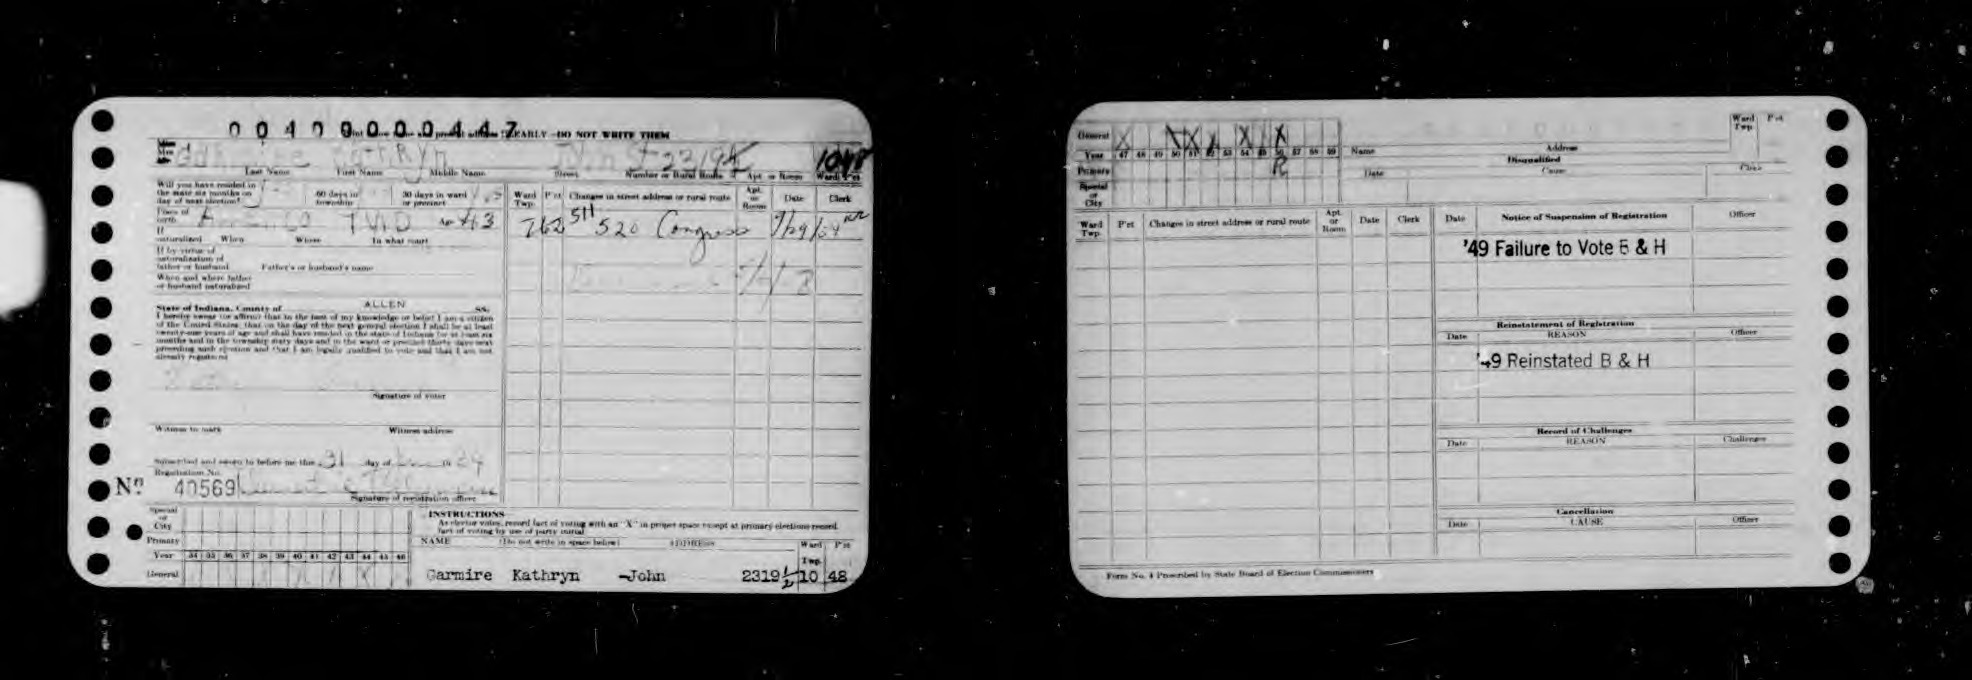 0 0 4 0 0 0 0 0 4 4 7
EARLY—DO NOT WRITE THEM
Garmire Kathryn John St 2319½ 10 48
Last Name First Name Middle Name Street Number or Rural Route Apt. or Room Ward Pct
Will you have resided in
the state six months on
day of next election?
60 days in
township
30 days in ward
or precinct
Place of
birth IND Age 43
If
naturalized When Where In what court
If by virtue of
naturalization of
father or husband Father's or husband's name
When and where father
or husband naturalized
State of Indiana, County of ALLEN SS.
I hereby swear (or affirm) that to the best of my knowledge or belief I am a citizen
of the United States; that on the day of the next general election I shall be at least
twenty-one years of age and shall have resided in the state of Indiana for at least six
months and in the township sixty days and in the ward or precinct thirty days next
preceding such election and that I am legally qualified to vote and that I am not
already registered
Signature of voter
Witness to mark Witness address
Subscribed and sworn to before me this 31 day of
Registration No.
No. 40569
Signature of registration officer
Ward
Twp. Pct Changes in street address or rural route Apt.
or
Room Date Clerk
762 511 520 Congress 9/29/
Special
or
City
Primary
Year 34 35 36 37 38 39 40 41 42 43 44 45 46
General
INSTRUCTIONS
As elector votes, record fact of voting with an "X" in proper space except at primary elections record
fact of voting by use of party initial
NAME (Do not write in space below) ADDRESS Ward
Twp. Pct
Garmire Kathryn -John 2319½ 10 48
General X X X X X X
Year 47 48 49 50 51 52 53 54 55 56 57 58 59
Primary R
Special
or
City
Name Address Ward
Twp. Pct
Disqualified
Date Cause Clerk
Ward
Twp. Pct Changes in street address or rural route Apt.
or
Room Date Clerk
Date Notice of Suspension of Registration Officer
'49 Failure to Vote B & H
Reinstatement of Registration
Date REASON Officer
'49 Reinstated B & H
Record of Challenges
Date REASON Challenger
Cancellation
Date CAUSE Officer
Form No. 4 Prescribed by State Board of Election Commissioners